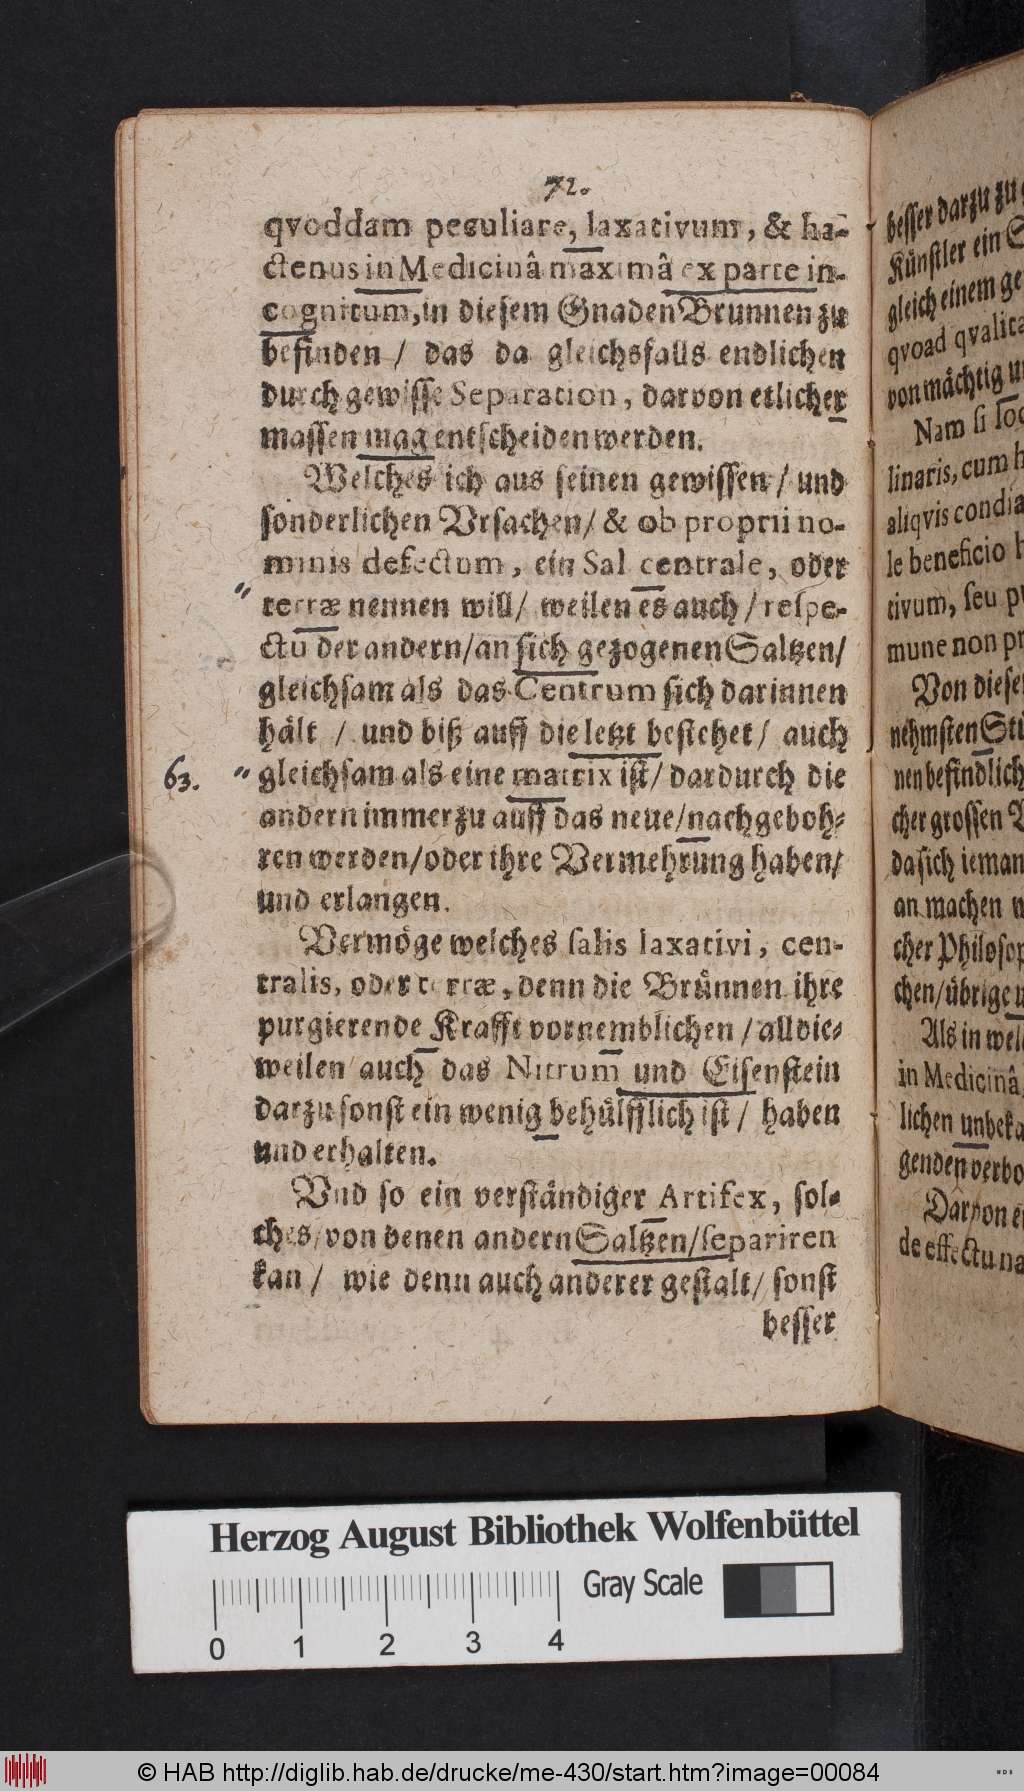 72.
qvoddam peculiare, laxativum, & ha-
ctenus in Medicinâ maximâ ex parte in-
cognitum, in diesem Gnaden Brunnen zu
befinden / das da gleichsfalls endlichen
durch gewisse Separation, darvon etlicher
massen mag entscheiden werden.
Welches ich aus seinen gewissen / und
sonderlichen Vrsachen / & ob proprii no-
minis defectum, ein Sal centrale, oder
" terræ nennen will / weilen es auch / respe-
ctu der andern / an sich gezogenen Saltzen /
gleichsam als das Centrum sich darinnen
hält / und biß auff die letzt bestehet / auch
63. " gleichsam als eine matrix ist / dardurch die
andern immerzu auff das neue / nachgeboh-
ren werden / oder ihre Vermehrung haben /
und erlangen.
Vermöge welches salis laxativi, cen-
tralis, oder terræ, denn die Brünnen ihre
purgierende Krafft vornemblichen / alldie-
weilen auch das Nitrum und Eisenstein
darzu sonst ein wenig behülfflich ist / haben
und erhalten.
Vnd so ein verständiger Artifex, sol-
ches / von denen andern Saltzen / separiren
kan / wie denn auch anderer gestalt / sonst
besser
besser darzu zu
Künstler ein
gleich einem
qvoad
von mächtig
Nam si
linaris, cum
aliqvis
le beneficio
tivum, seu
mune non
Von
nehmsten
nen
cher grossen
da sich
an machen
cher
chen / übrige
Als in
in Medicinâ
lichen
genden
Darvon
de effectu
Herzog August Bibliothek Wolfenbüttel
Gray Scale
0 1 2 3 4
© HAB http://diglib.hab.de/drucke/me-430/start.htm?image=00084